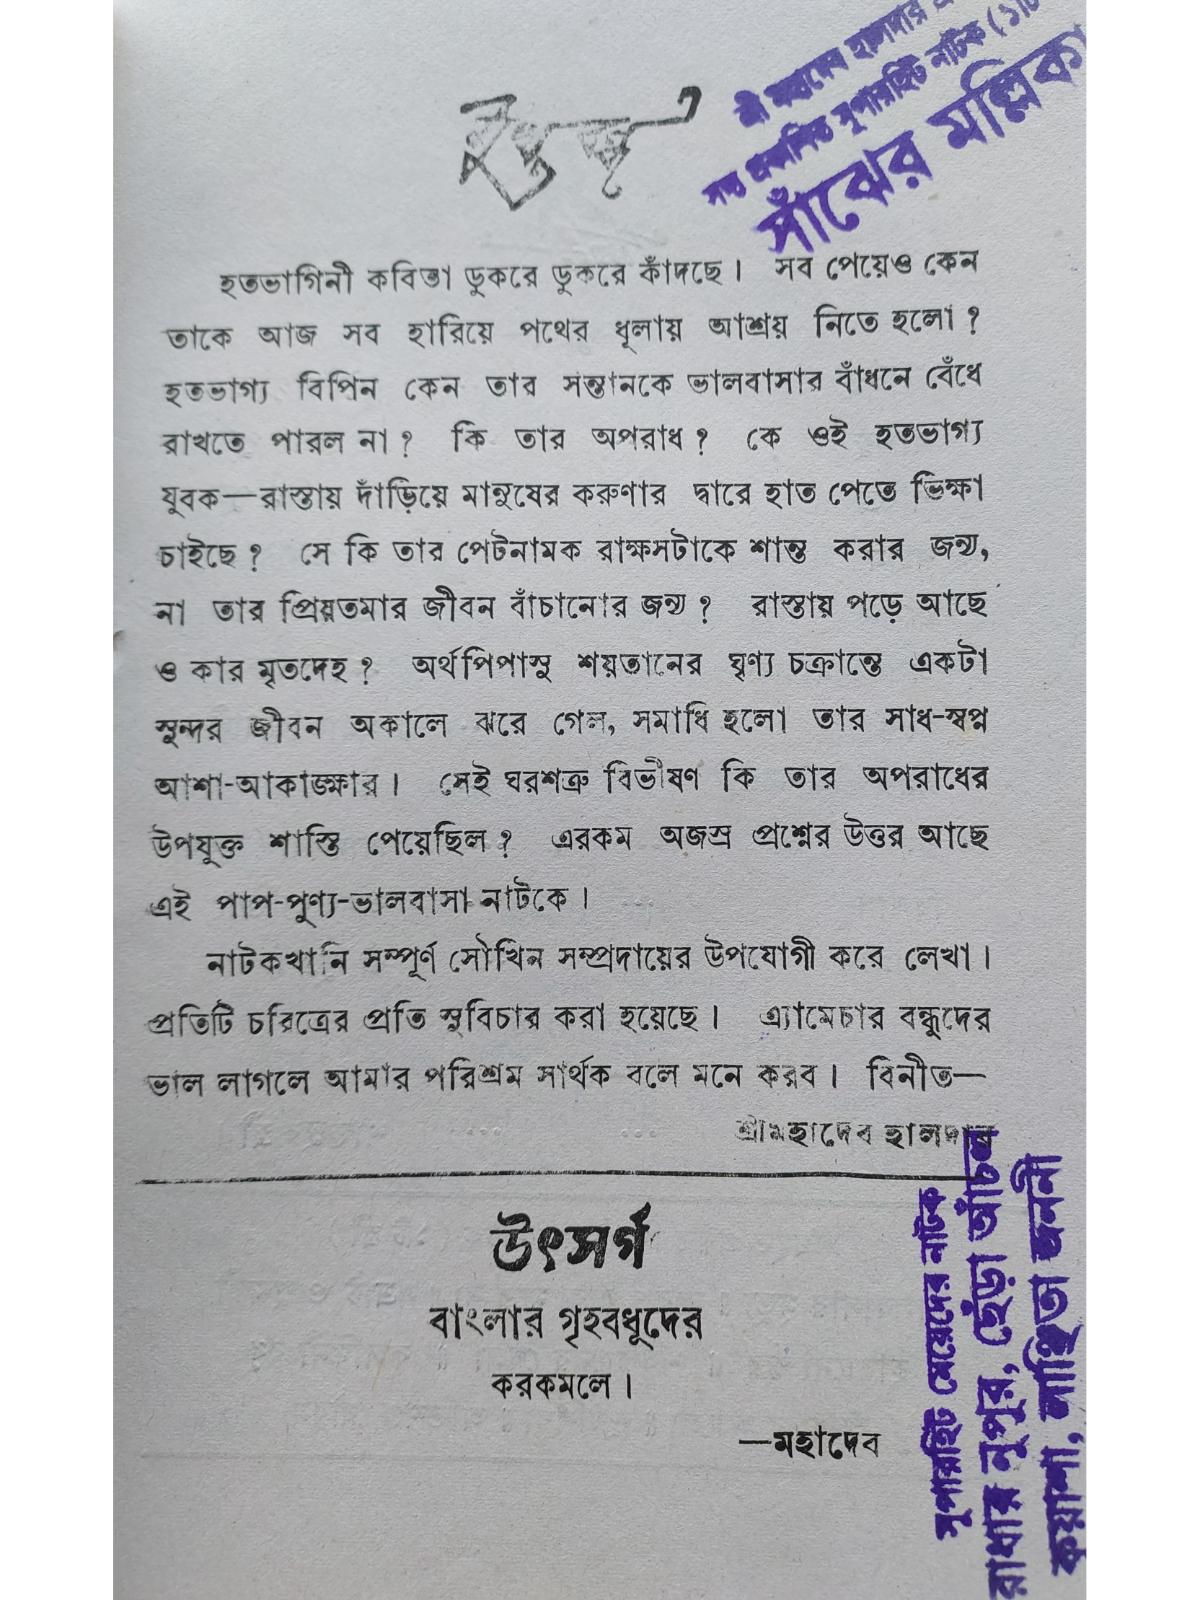 শ্রী মহাদেব হালদার
সদ্য প্রকাশিত সুপারহিট নাটক
সাঁঝের মল্লিকা
হতভাগিনী কবিতা ডুকরে ডুকরে কাঁদছে। সব পেয়েও কেন
তাকে আজ সব হারিয়ে পথের ধূলায় আশ্রয় নিতে হলো?
হতভাগ্য বিপিন কেন তার সন্তানকে ভালবাসার বাঁধনে বেঁধে
রাখতে পারল না? কি তার অপরাধ? কে ওই হতভাগ্য
যুবক—রাস্তায় দাঁড়িয়ে মানুষের করুণার দ্বারে হাত পেতে ভিক্ষা
চাইছে? সে কি তার পেটনামক রাক্ষসটাকে শান্ত করার জন্য,
না তার প্রিয়তমার জীবন বাঁচানোর জন্য? রাস্তায় পড়ে আছে
ও কার মৃতদেহ? অর্থপিপাসু শয়তানের ঘৃণ্য চক্রান্তে একটা
সুন্দর জীবন অকালে ঝরে গেল, সমাধি হলো তার সাধ-স্বপ্ন
আশা-আকাঙ্ক্ষার। সেই ঘরশত্রু বিভীষণ কি তার অপরাধের
উপযুক্ত শাস্তি পেয়েছিল? এরকম অজস্র প্রশ্নের উত্তর আছে
এই পাপ-পুণ্য-ভালবাসা নাটকে।
নাটকখানি সম্পূর্ণ সৌখিন সম্প্রদায়ের উপযোগী করে লেখা।
প্রতিটি চরিত্রের প্রতি সুবিচার করা হয়েছে। এ্যামেচার বন্ধুদের
ভাল লাগলে আমার পরিশ্রম সার্থক বলে মনে করব। বিনীত—
শ্রীমহাদেব হালদার
উৎসর্গ
বাংলার গৃহবধূদের
করকমলে।
—মহাদেব
সুপারহিট মেয়েদের নাটক
রাধার নুপুর, ছেঁড়া আঁচল
কুয়াশা, লাঞ্ছিতা জননী